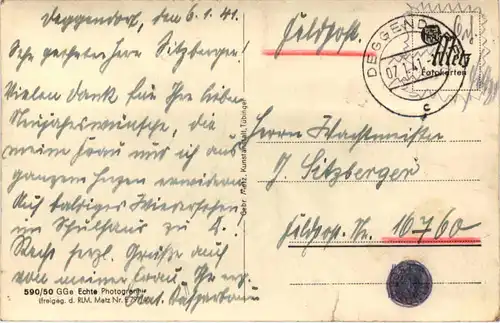 Deggendorf, den 6.1.41.
Sehr geehrter Herr Sitzberger!
Vielen Dank für Ihre lieben
Neujahrswünsche, die
meine Frau und ich aus
ganzem Herzen erwidern.
Auf baldiges Wiedersehen
im Schulhaus zu
Recht herzl. Grüße auch
von meiner Frau Ihr
590/50 GGa Echte Photographie
(freigeg. d. RLM, Metz Nr.
Gebr. Metz, Kunstanstalt, Tübingen
Feldpost.
DEGGEND
07.1.41
c
Metz
Fotokarten
Herrn Wachtmeister
J. Sitzberger
Feldp. Nr. 10760